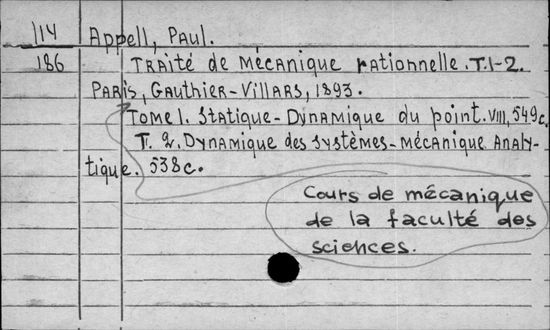 114 Appell, Paul.
186 Traité de mécanique rationnelle. T.1-2.
Paris, Gauthier-Villars, 1893.
Tome 1. Statique - Dynamique du point. VIII, 549 c.
T. 2. Dynamique des systèmes - mécanique analy-
tique. 538 c.
Cours de mécanique
de la faculté des
sciences.